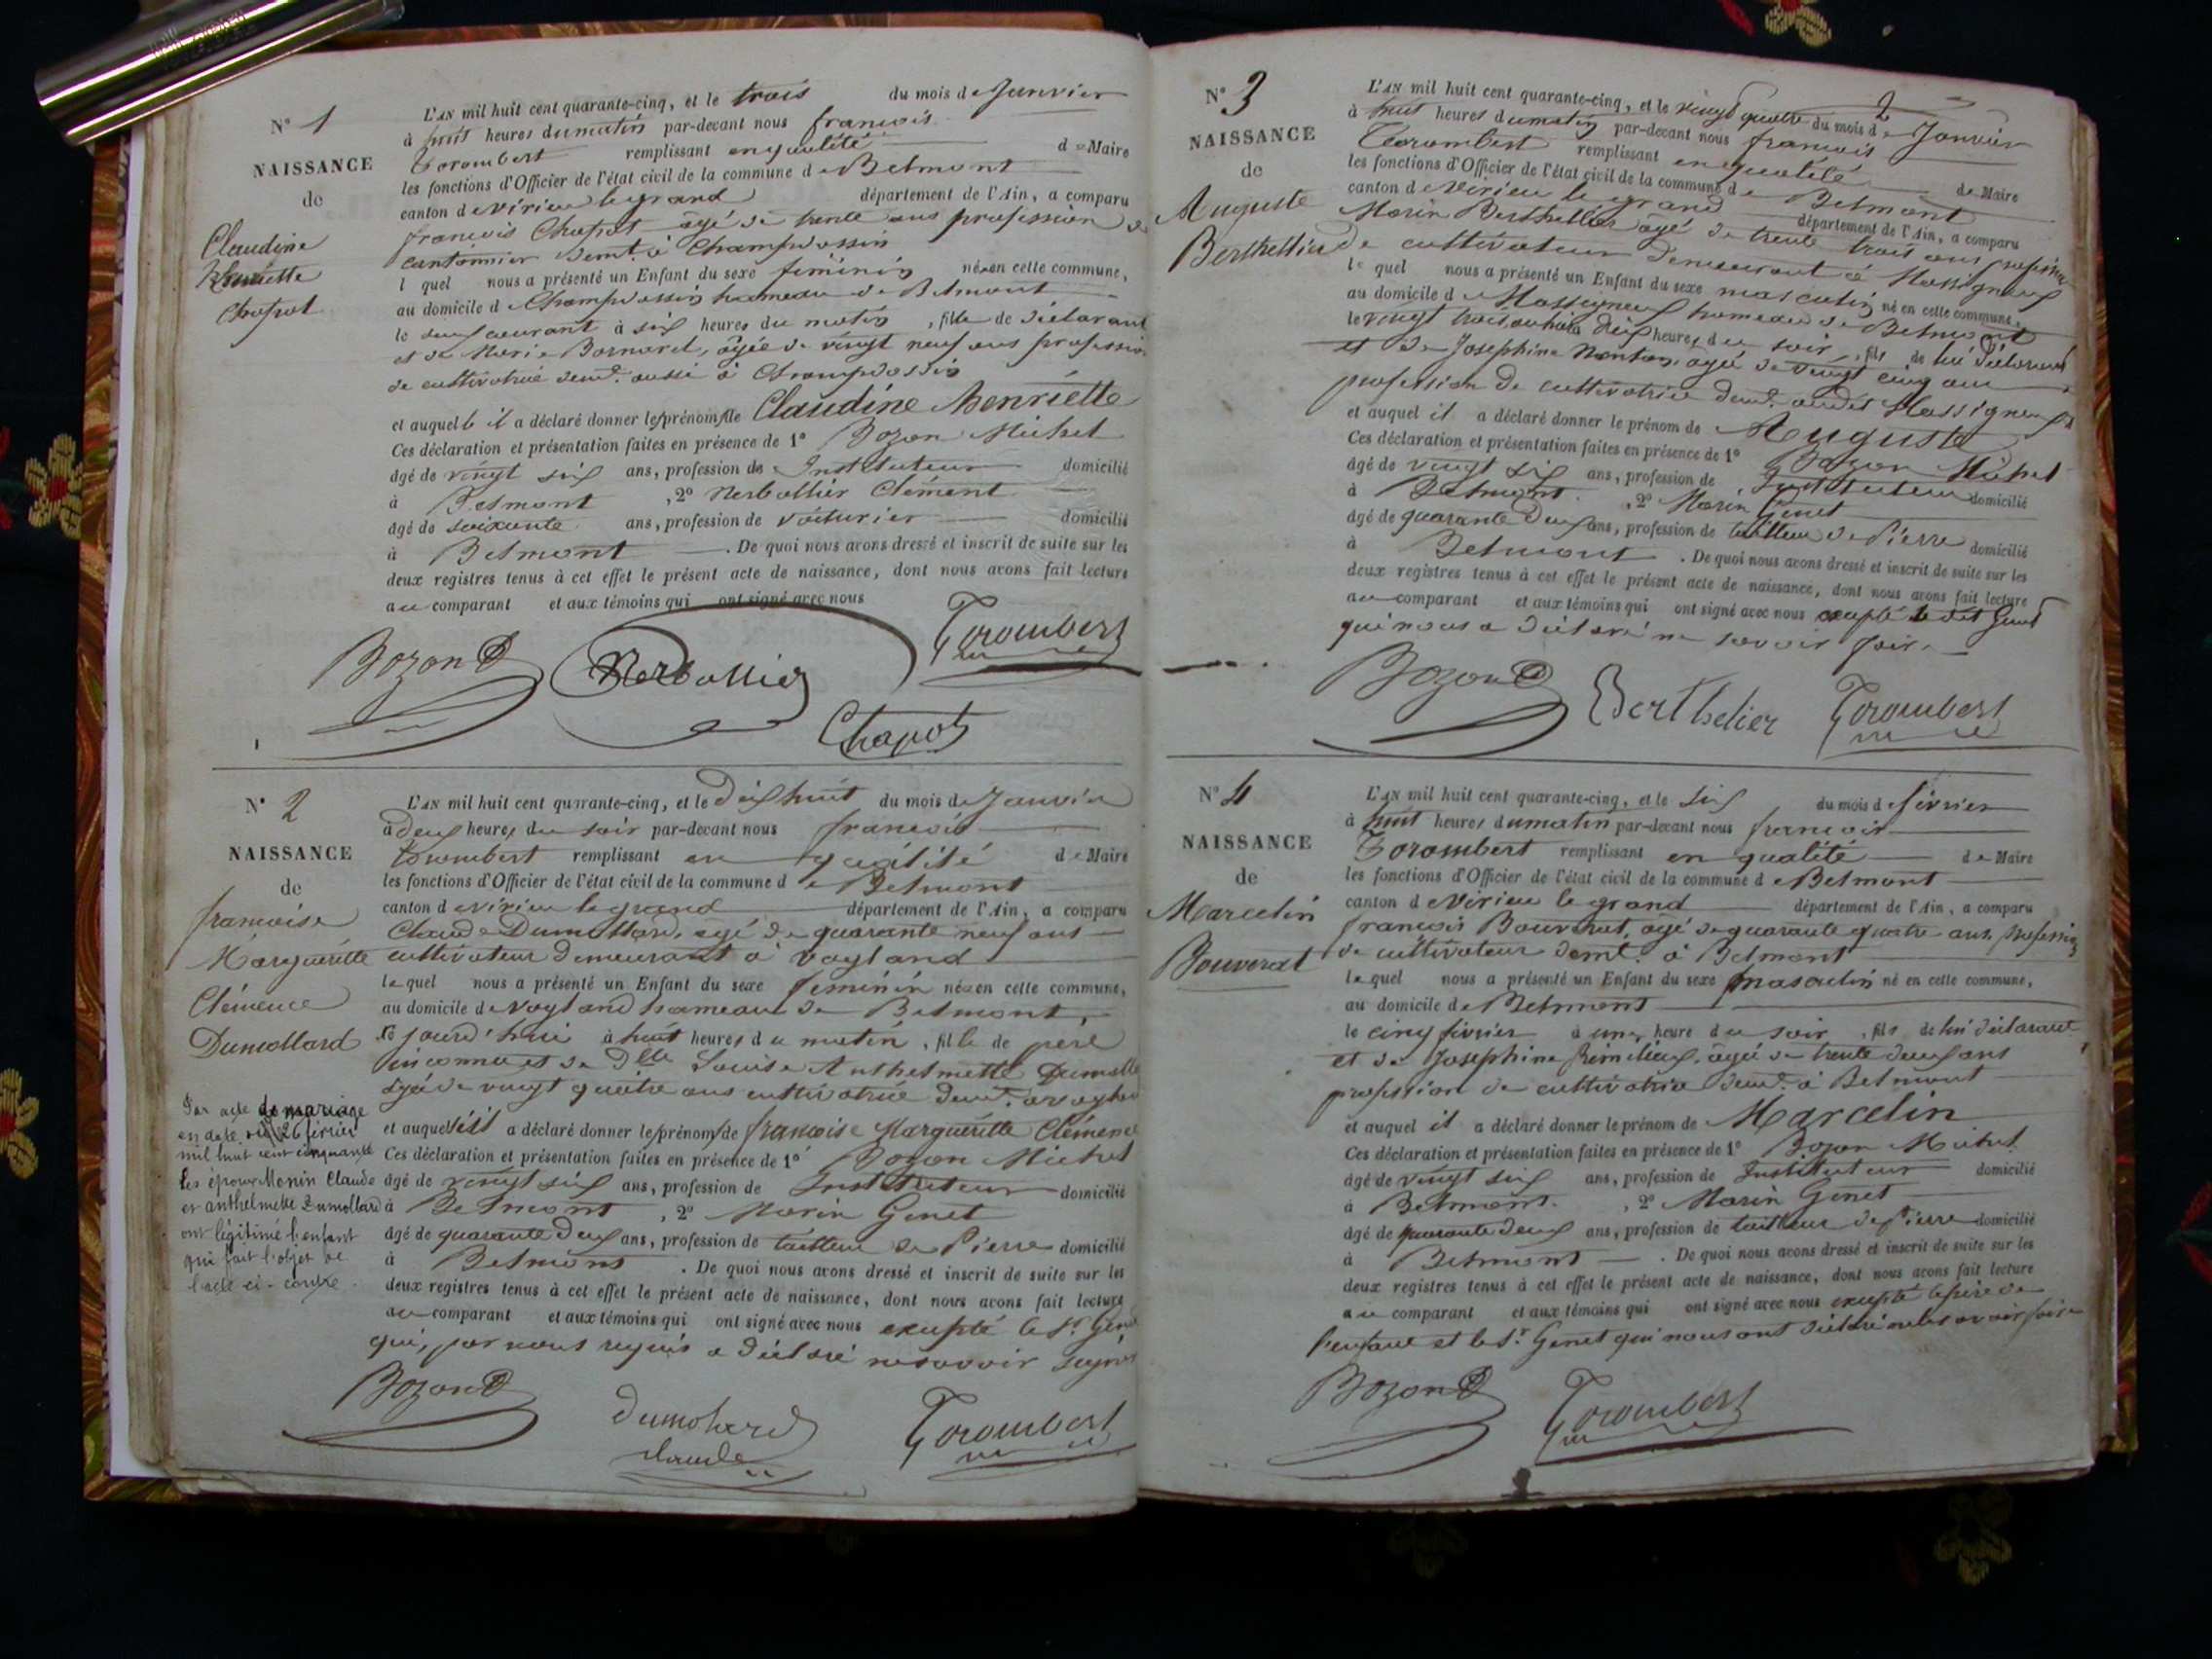 N° 1
NAISSANCE
de
Claudine
Henriette
Chapot
L'AN mil huit cent quarante-cinq, et le trois du mois de Janvier
à huit heures du matin par-devant nous françois
Torombert remplissant en qualité de Maire
les fonctions d'Officier de l'état civil de la commune de Belmont
canton de Virieu le grand département de l'Ain, a comparu
françois Chapot âgé de trente ans profession de
cantonnier demt. à Champdossin
l quel nous a présenté un Enfant du sexe féminin née en cette commune,
au domicile de Champdossin hameau de Belmont
le deux courant à six heures du matin, fille de déclarant
et de Marie Bornard, âgée de vingt neuf ans profession
de cultivatrice demt. aussi à Champdossin
et auquelle il a déclaré donner les prénoms de Claudine henriette
Ces déclaration et présentation faites en présence de 1° Bozon Michel
âgé de vingt six ans, profession de Instituteur domicilié
à Belmont, 2° Nerbollier Clément
âgé de soixante ans, profession de voiturier domicilié
à Belmont. De quoi nous avons dressé et inscrit de suite sur les
deux registres tenus à cet effet le présent acte de naissance, dont nous avons fait lecture
au comparant et aux témoins qui ont signé avec nous
Bozon Nerbollier Torombert
Chapot
N° 2
NAISSANCE
de
françoise
Marguéritte
Clémence
Dumollard
Par acte de mariage
en date du 26 février
mil huit cent cinquante
les époux Monin Claude
et anthelmette Dumollard
ont légitimé l'enfant
qui fait l'objet de
l'acte ci-contre.
L'AN mil huit cent quarante-cinq, et le dix huit du mois de Janvier
à deux heures du soir par-devant nous françois
torombert remplissant en qualité de Maire
les fonctions d'Officier de l'état civil de la commune de Belmont
canton de virieu le grand département de l'Ain, a comparu
Claude Dumollard, agé de quarante neuf ans
cultivateur demeurant à vogland
lequel nous a présenté un Enfant du sexe féminin née en cette commune,
au domicile de vogland hameau de Belmont,
ce jourd'hui à huit heures du matin, fille de père
inconnu et de Dlle Louise Anthelmette Dumolla
agée de vingt quatre ans cultivatrice demt. a vogland
et auquel il a déclaré donner les prénoms de françoise Marguéritte Clémence
Ces déclaration et présentation faites en présence de 1° Bozon Michel
âgé de vingt six ans, profession de Instituteur domicilié
à Belmont, 2° Marin Genet
âgé de quarante deux ans, profession de tailleur de Pierre domicilié
à Belmont. De quoi nous avons dressé et inscrit de suite sur les
deux registres tenus à cet effet le présent acte de naissance, dont nous avons fait lecture
au comparant et aux témoins qui ont signé avec nous excepté le Sr. Genet
qui, par nous requis a déclaré ne savoir signer
Bozon dumolard Torombert
claude
2
N° 3
NAISSANCE
de
Auguste
Berthellier
L'AN mil huit cent quarante-cinq, et le vingt quatre du mois de Janvier
à huit heures du matin par-devant nous françois
Torombert remplissant en qualité de Maire
les fonctions d'Officier de l'état civil de la commune de Belmont
canton de Virieu le grand département de l'Ain, a comparu
Marin Berthellier âgé de trente trois ans profession
de cultivateur demeurant à Massigneux
le quel nous a présenté un Enfant du sexe masculin né en cette commune,
au domicile de Massigneux hameau de Belmont
le vingt trois à deux heures du soir, fils de lui déclarant
et de Josephine âgée de vingt cinq ans
profession de cultivatrice demt. audit Massigneux
et auquel il a déclaré donner le prénom de Auguste
Ces déclaration et présentation faites en présence de 1° Bozon Michel
âgé de vingt six ans, profession de Instituteur domicilié
à Belmont, 2° Marin Genet
âgé de quarante deux ans, profession de tailleur de Pierre domicilié
à Belmont. De quoi nous avons dressé et inscrit de suite sur les
deux registres tenus à cet effet le présent acte de naissance, dont nous avons fait lecture
au comparant et aux témoins qui ont signé avec nous excepté le dit Genet
qui nous a déclaré ne savoir faire
Bozon Berthelier Torombert
N° 4
NAISSANCE
de
Marcelin
Bouverat
L'AN mil huit cent quarante-cinq, et le six du mois de février
à huit heures du matin par-devant nous françois
Torombert remplissant en qualité de Maire
les fonctions d'Officier de l'état civil de la commune de Belmont
canton de Virieu le grand département de l'Ain, a comparu
françois Bouverat, âgé de quarante quatre ans, profession
de cultivateur demt. à Belmont
le quel nous a présenté un Enfant du sexe masculin né en cette commune,
au domicile de Belmont
le cinq février à une heure du soir, fils de lui déclarant
et de Josephine âgée de trente deux ans
profession de cultivatrice demt. à Belmont
et auquel il a déclaré donner le prénom de Marcelin
Ces déclaration et présentation faites en présence de 1° Bozon Michel
âgé de vingt six ans, profession de Instituteur domicilié
à Belmont, 2° Marin Genet
âgé de quarante deux ans, profession de tailleur de Pierre domicilié
à Belmont. De quoi nous avons dressé et inscrit de suite sur les
deux registres tenus à cet effet le présent acte de naissance, dont nous avons fait lecture
au comparant et aux témoins qui ont signé avec nous excepté le père de
l'enfant et le Sr. Genet qui nous ont déclaré ne le savoir faire
Bozon Torombert